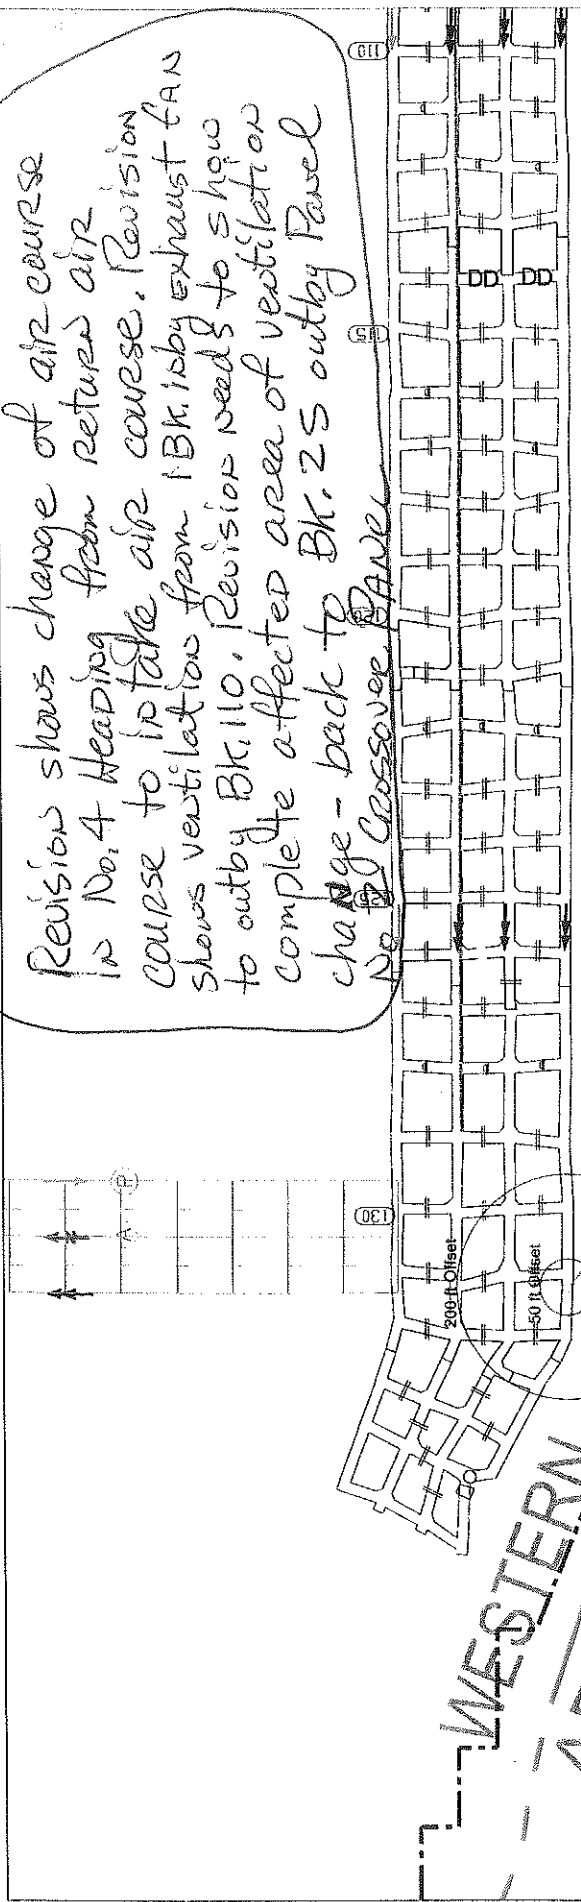 Revision shows change of air course
in No. 4 Heading from return air
course to intake air course. Revision
shows ventilation from 1BK. inby exhaust fan
to outby BK. 110. Revision needs to show
complete affected area of ventilation
change - back to BK. 25 outby Panel
No Crossover Panel
110
115
DD DD
120
125
130
R
A
200 ft Offset
50 ft Offset
WESTERN